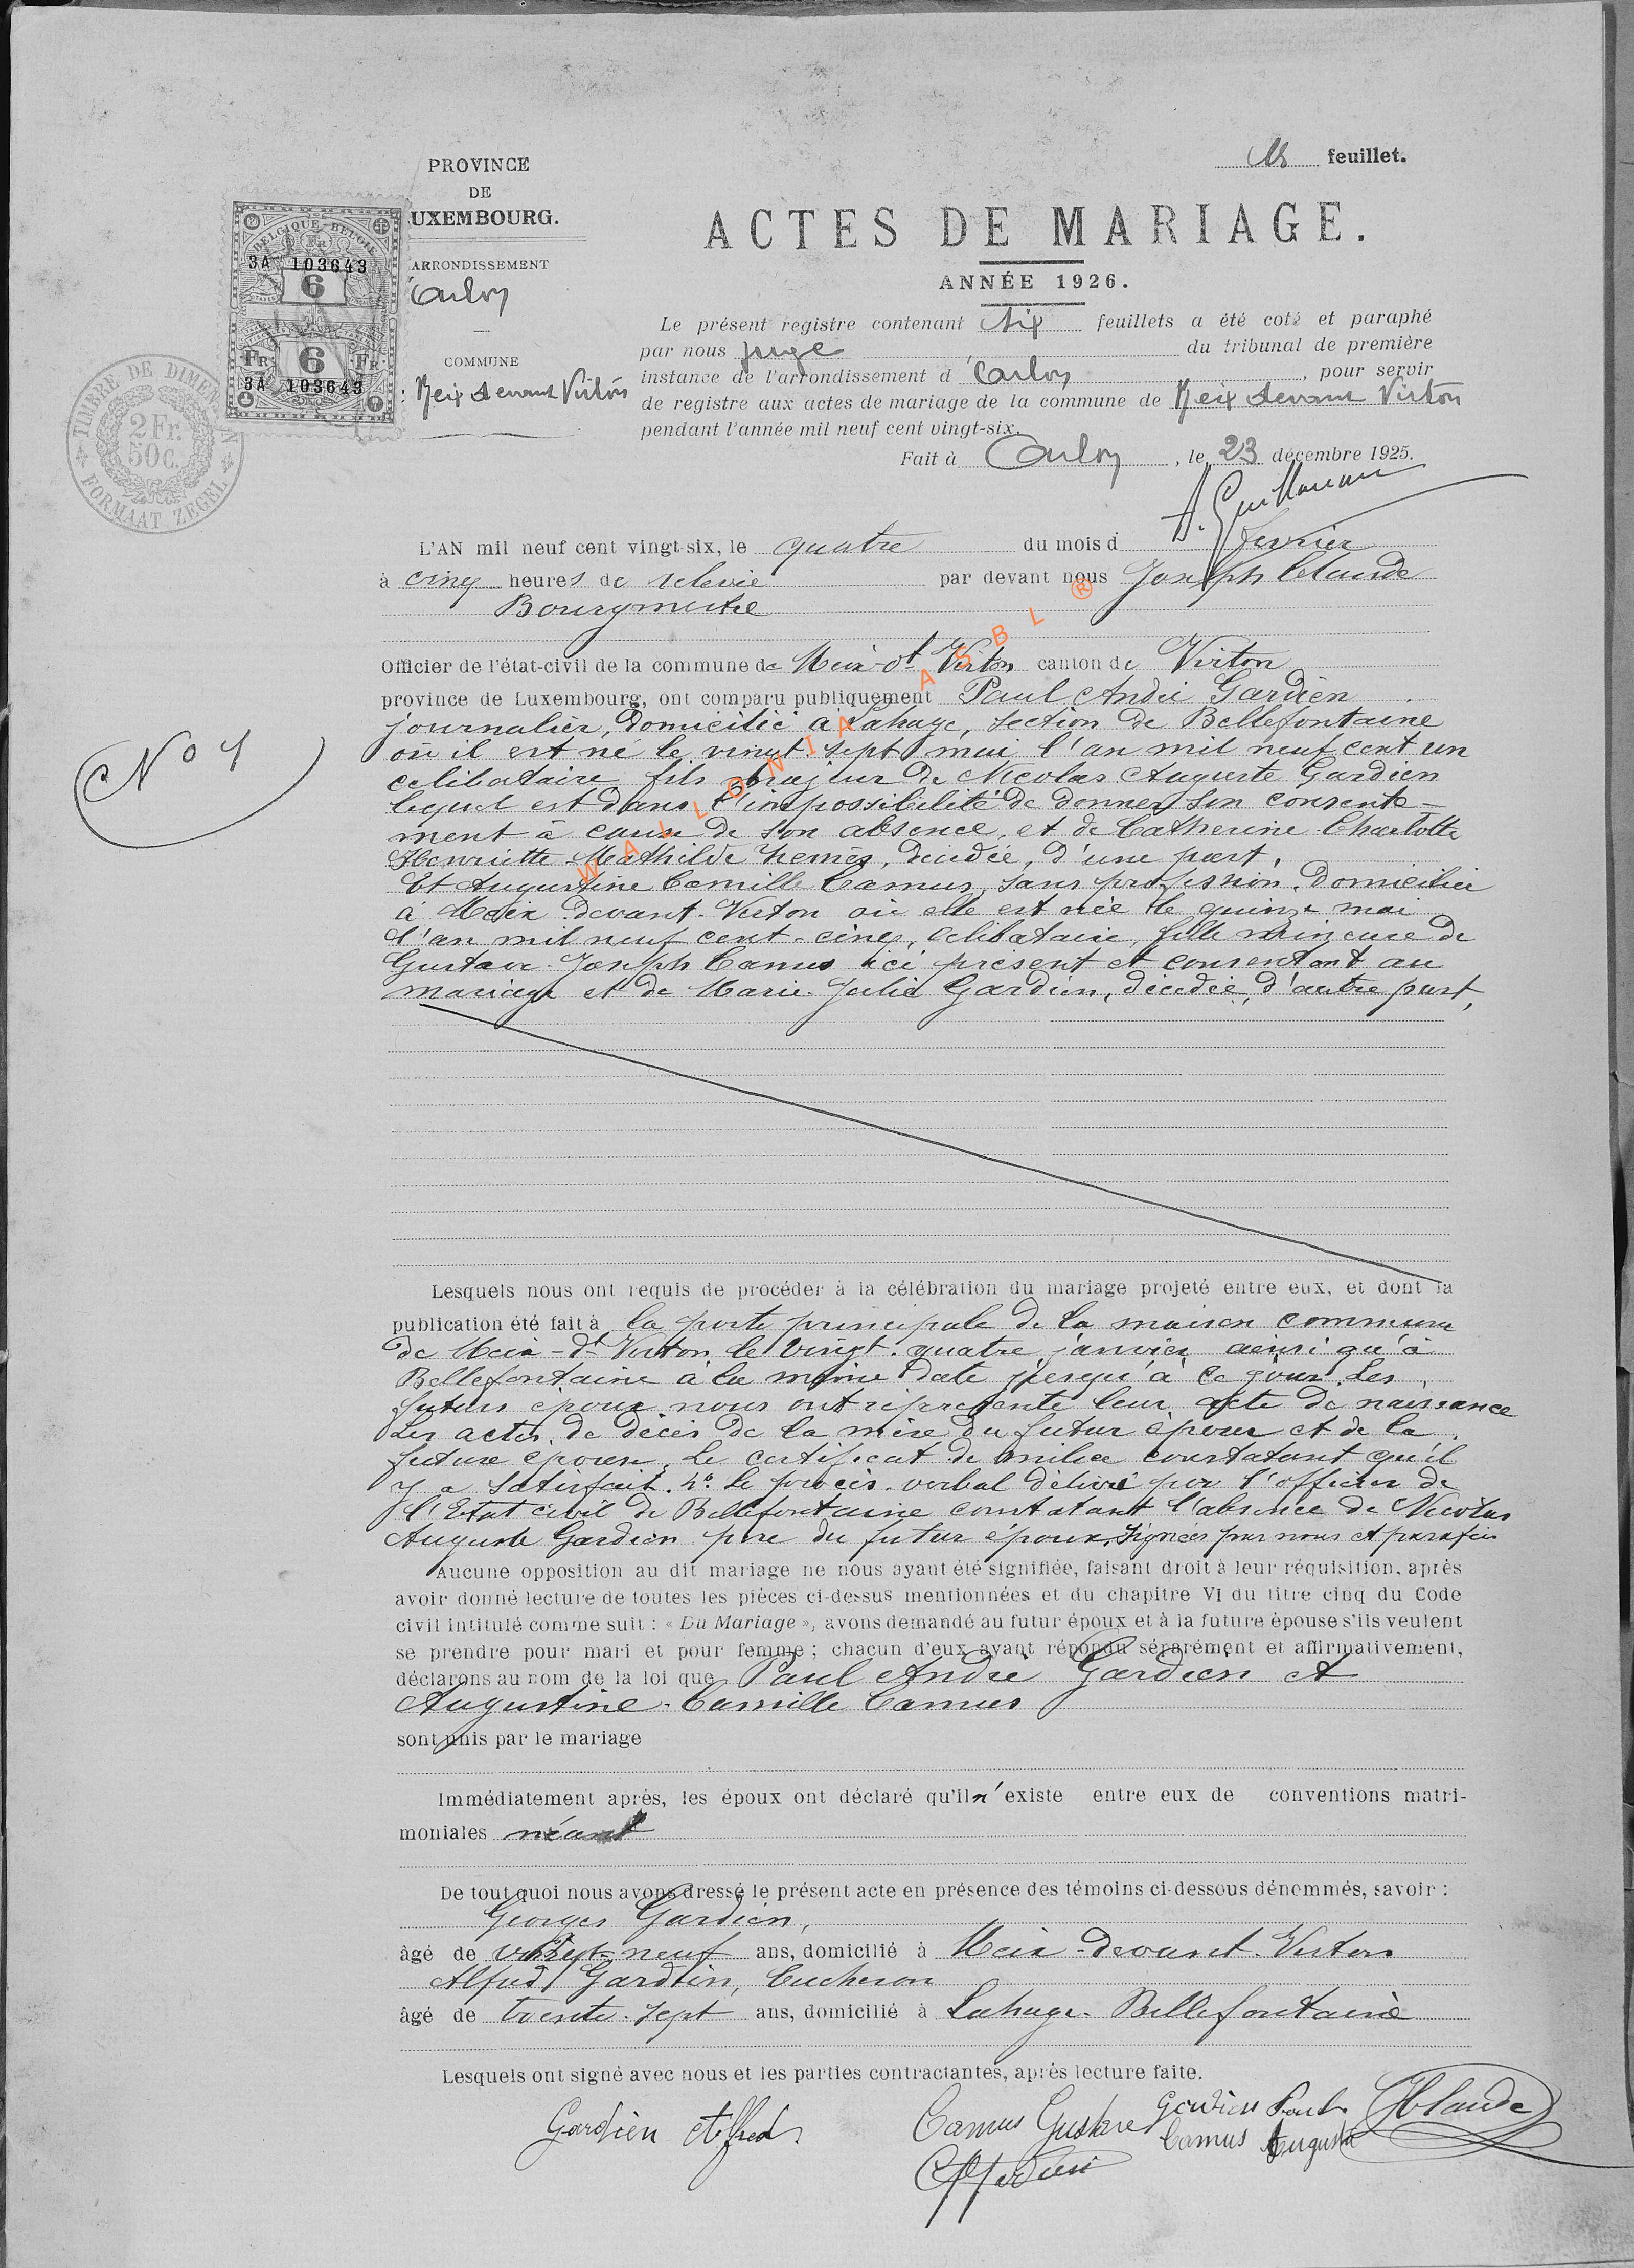 feuillet.
PROVINCE
DE
UXEMBOURG.
ARRONDISSEMENT
Arlon
COMMUNE
: Meix devant Virton
BELGIQUE-BELGIE
FR
3A 103643
6
6
FR. FR.
3A 103643
TIMBRE DE DIMEN N
2 Fr.
50c.
FORMAAT ZEGEL
ACTES DE MARIAGE.
ANNÉE 1926.
Le présent registre contenant six feuillets a été coté et paraphé
par nous juge du tribunal de première
instance de l'arrondissement d'Arlon, pour servir
de registre aux actes de mariage de la commune de Meix devant Virton
pendant l'année mil neuf cent vingt-six.
Fait à Arlon, le 23 décembre 1925.
N° 1
L'AN mil neuf cent vingt-six, le quatre du mois d février
à cinq heures de relevée par devant nous Joseph Claude
Bourgmestre
Officier de l'état-civil de la commune de Meix-dt Virton canton de Virton
province de Luxembourg, ont comparu publiquement Paul André Gardien
journalier, domicilié à Lahage, section de Bellefontaine
où il est né le vingt-sept mai l'an mil neuf cent un
celibataire fils majeur de Nicolas Auguste Gardien
lequel est dans l'impossibilité de donner son consente-
ment à cause de son absence, et de Catherine Charlotte
Henriette Mathilde, décédée, d'une part,
Et Augustine Camille Camus, sans profession, domiciliée
à Meix-devant-Virton où elle est née le quinze mai
l'an mil neuf cent-cinq, celibataire, fille mineure de
Gustave-Joseph Camus ici présent et consentant au
mariage et de Marie-Julie Gardien, décédée, d'autre part,
Lesquels nous ont requis de procéder à la célébration du mariage projeté entre eux, et dont la
publication été fait à la porte principale de la maison commune
de Meix-dt Virton le vingt-quatre janvier ainsi qu'à
Bellefontaine à la même date jusqu'à ce jour. Les
futurs époux nous ont représenté leur acte de naissance
Les actes de décès de la mère du futur époux et de la
future épouse, Le certificat de milice constatant qu'il
y a satisfait. 4° Le procès-verbal délivré par l'officier de
l'Etat civil de Bellefontaine constatant l'absence de Nicolas
Auguste Gardien père du futur époux, signées par nous et parafées
Aucune opposition au dit mariage ne nous ayant été signifiée, faisant droit à leur réquisition, après
avoir donné lecture de toutes les pièces ci-dessus mentionnées et du chapitre VI du titre cinq du Code
civil intitulé comme suit : « Du Mariage », avons demandé au futur époux et à la future épouse s'ils veulent
se prendre pour mari et pour femme ; chacun d'eux ayant répondu séparément et affirmativement,
déclarons au nom de la loi que Paul André Gardien et
Augustine-Camille Camus
sont unis par le mariage
Immédiatement après, les époux ont déclaré qu'il n'existe entre eux de conventions matri-
moniales néant
De tout quoi nous avons dressé le présent acte en présence des témoins ci-dessous dénommés, savoir :
Georges Gardien,
âgé de vingt-neuf ans, domicilié à Meix-devant-Virton
Alfred Gardien, bucheron
âgé de trente-sept ans, domicilié à Lahage-Bellefontaine
Lesquels ont signé avec nous et les parties contractantes, après lecture faite.
Gardien Alfred
Camus Gustave
Gardien Paul
JClaude
Camus Augustine
WALLONIA ASBL ®